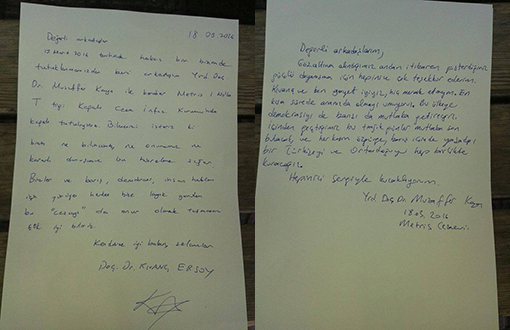 18 03 2016
Değerli arkadaşlar
15 Mart 2016 tarihinde haksız bir biçimde
tutuklanmamızdan beri arkadaşım Yrd. Doç.
Dr. Muzaffer Kaya ile birlikte Metris 1 Nolu
T tipi Kapalı Ceza İnfaz Kurumunda
kapalı tutuluyoruz. Bilmenizi isteriz ki
bizim ne
kararlı duruşuna
Bizler ve barış, demokrasi, insan hakları
için
bu "cezayı" da onur olarak taşımasını
çok iyi biliriz.
Kendinize iyi bakın, selamlar.
Doç. Dr. KIVANÇ ERSOY
Değerli arkadaşlarım,
Gözaltına alındığımız andan itibaren gösterdiğiniz
güçlü dayanışma için hepinize çok teşekkür ederim.
Kıvanç ve ben gayet iyiyiz, hiç merak etmeyin. En
kısa sürede aranızda olmayı umuyorum. Bu ülkeye
demokrasiyi de barışı da mutlaka getireceğiz.
İçinden geçtiğimiz bu trajik günler mutlaka son
bulacak, ve herkesin eşitçe, barış içinde yaşadığı
bir Türkiye'yi ve Ortadoğu'yu hep birlikte
kuracağız.
Hepinizi sevgiyle kucaklıyorum.
Yrd. Doç. Dr. Muzaffer Kaya
18.03.2016
Metris Cezaevi